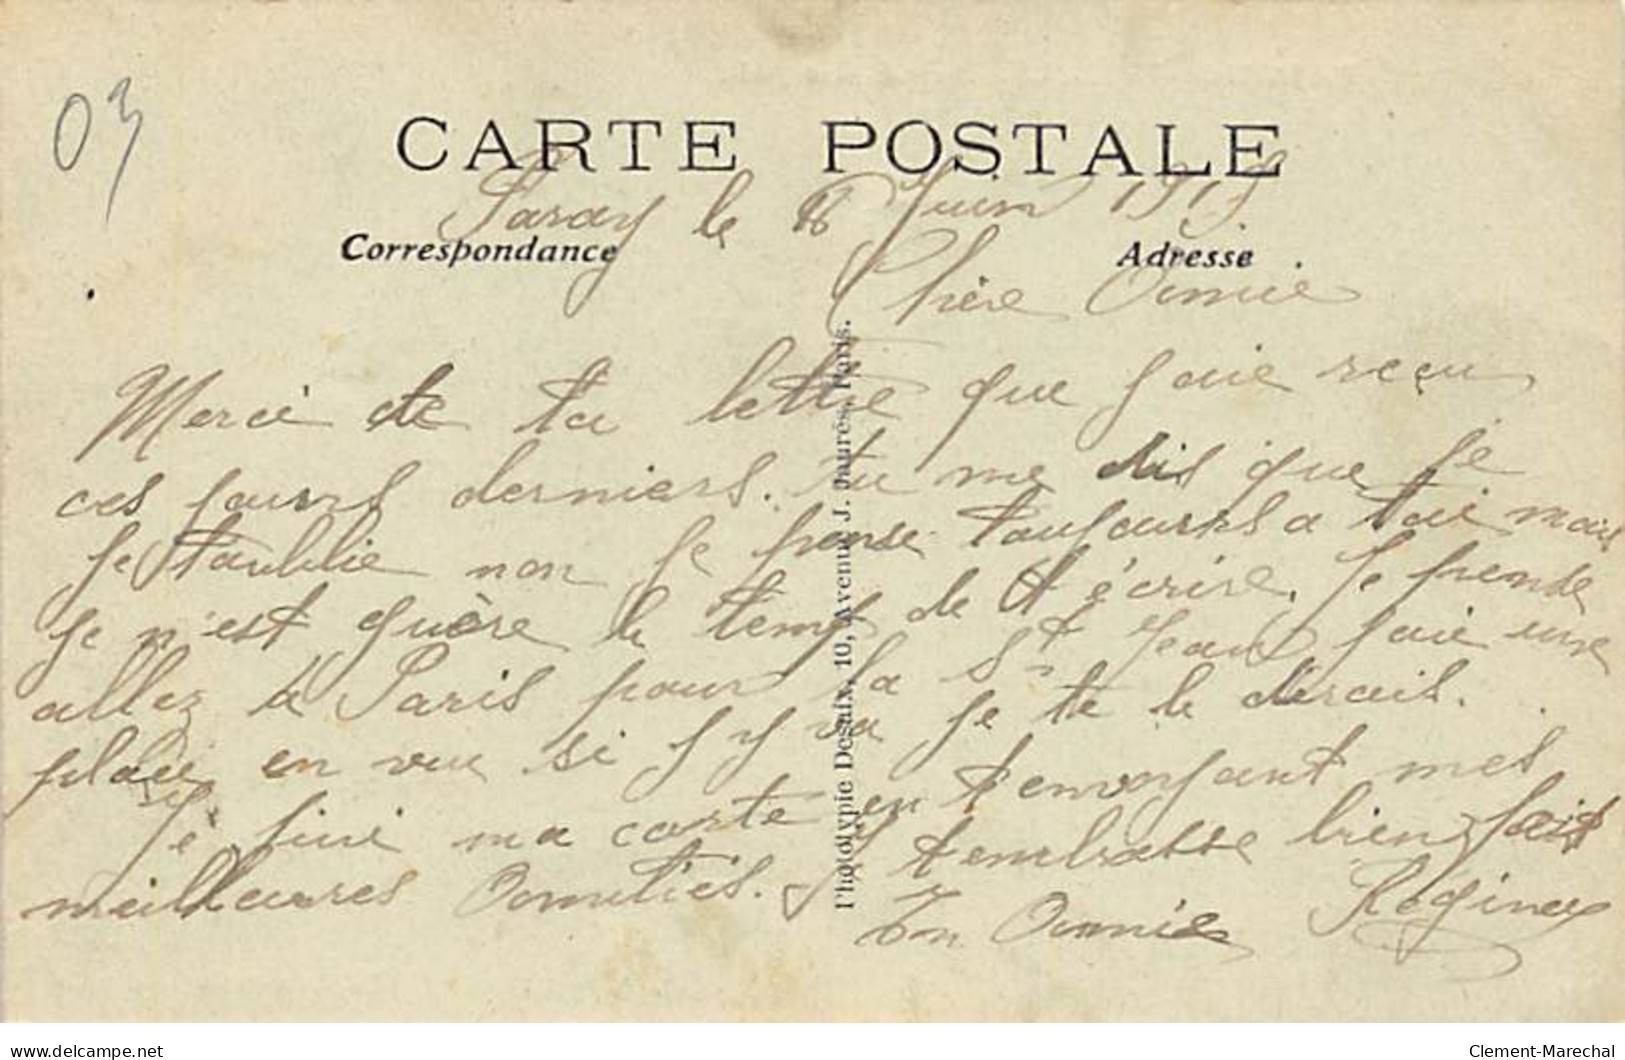 03
CARTE POSTALE
Paray le 8 Juin 1919
Correspondance
Adresse
Chère Amie
Merci de ta lettre que jaie reçu
ces jours derniers. tu me dis que je
je toublie non je pense toujours a toi mais
je n'est guère le temps de t'écrire. Je pense
allez à Paris pour la St Jean jaie une
place en vue si j y va je te le dirais.
Je fini ma carte en tenvoyant mes
meilleures Amitiés. J tembrasse bien fais
Ton Amie Regine
Phototypie Desaix, 10, Avenue J. Jaurès, Paris.
Clement-Marechal
https://www.delcampe.net